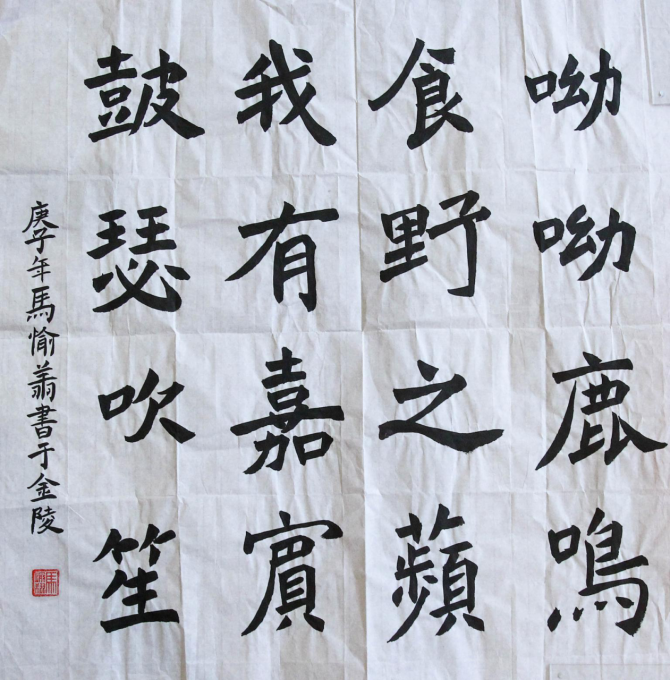 呦呦鹿鳴
食野之蘋
我有嘉賓
鼓瑟吹笙
庚子年馬愉翁書于金陵